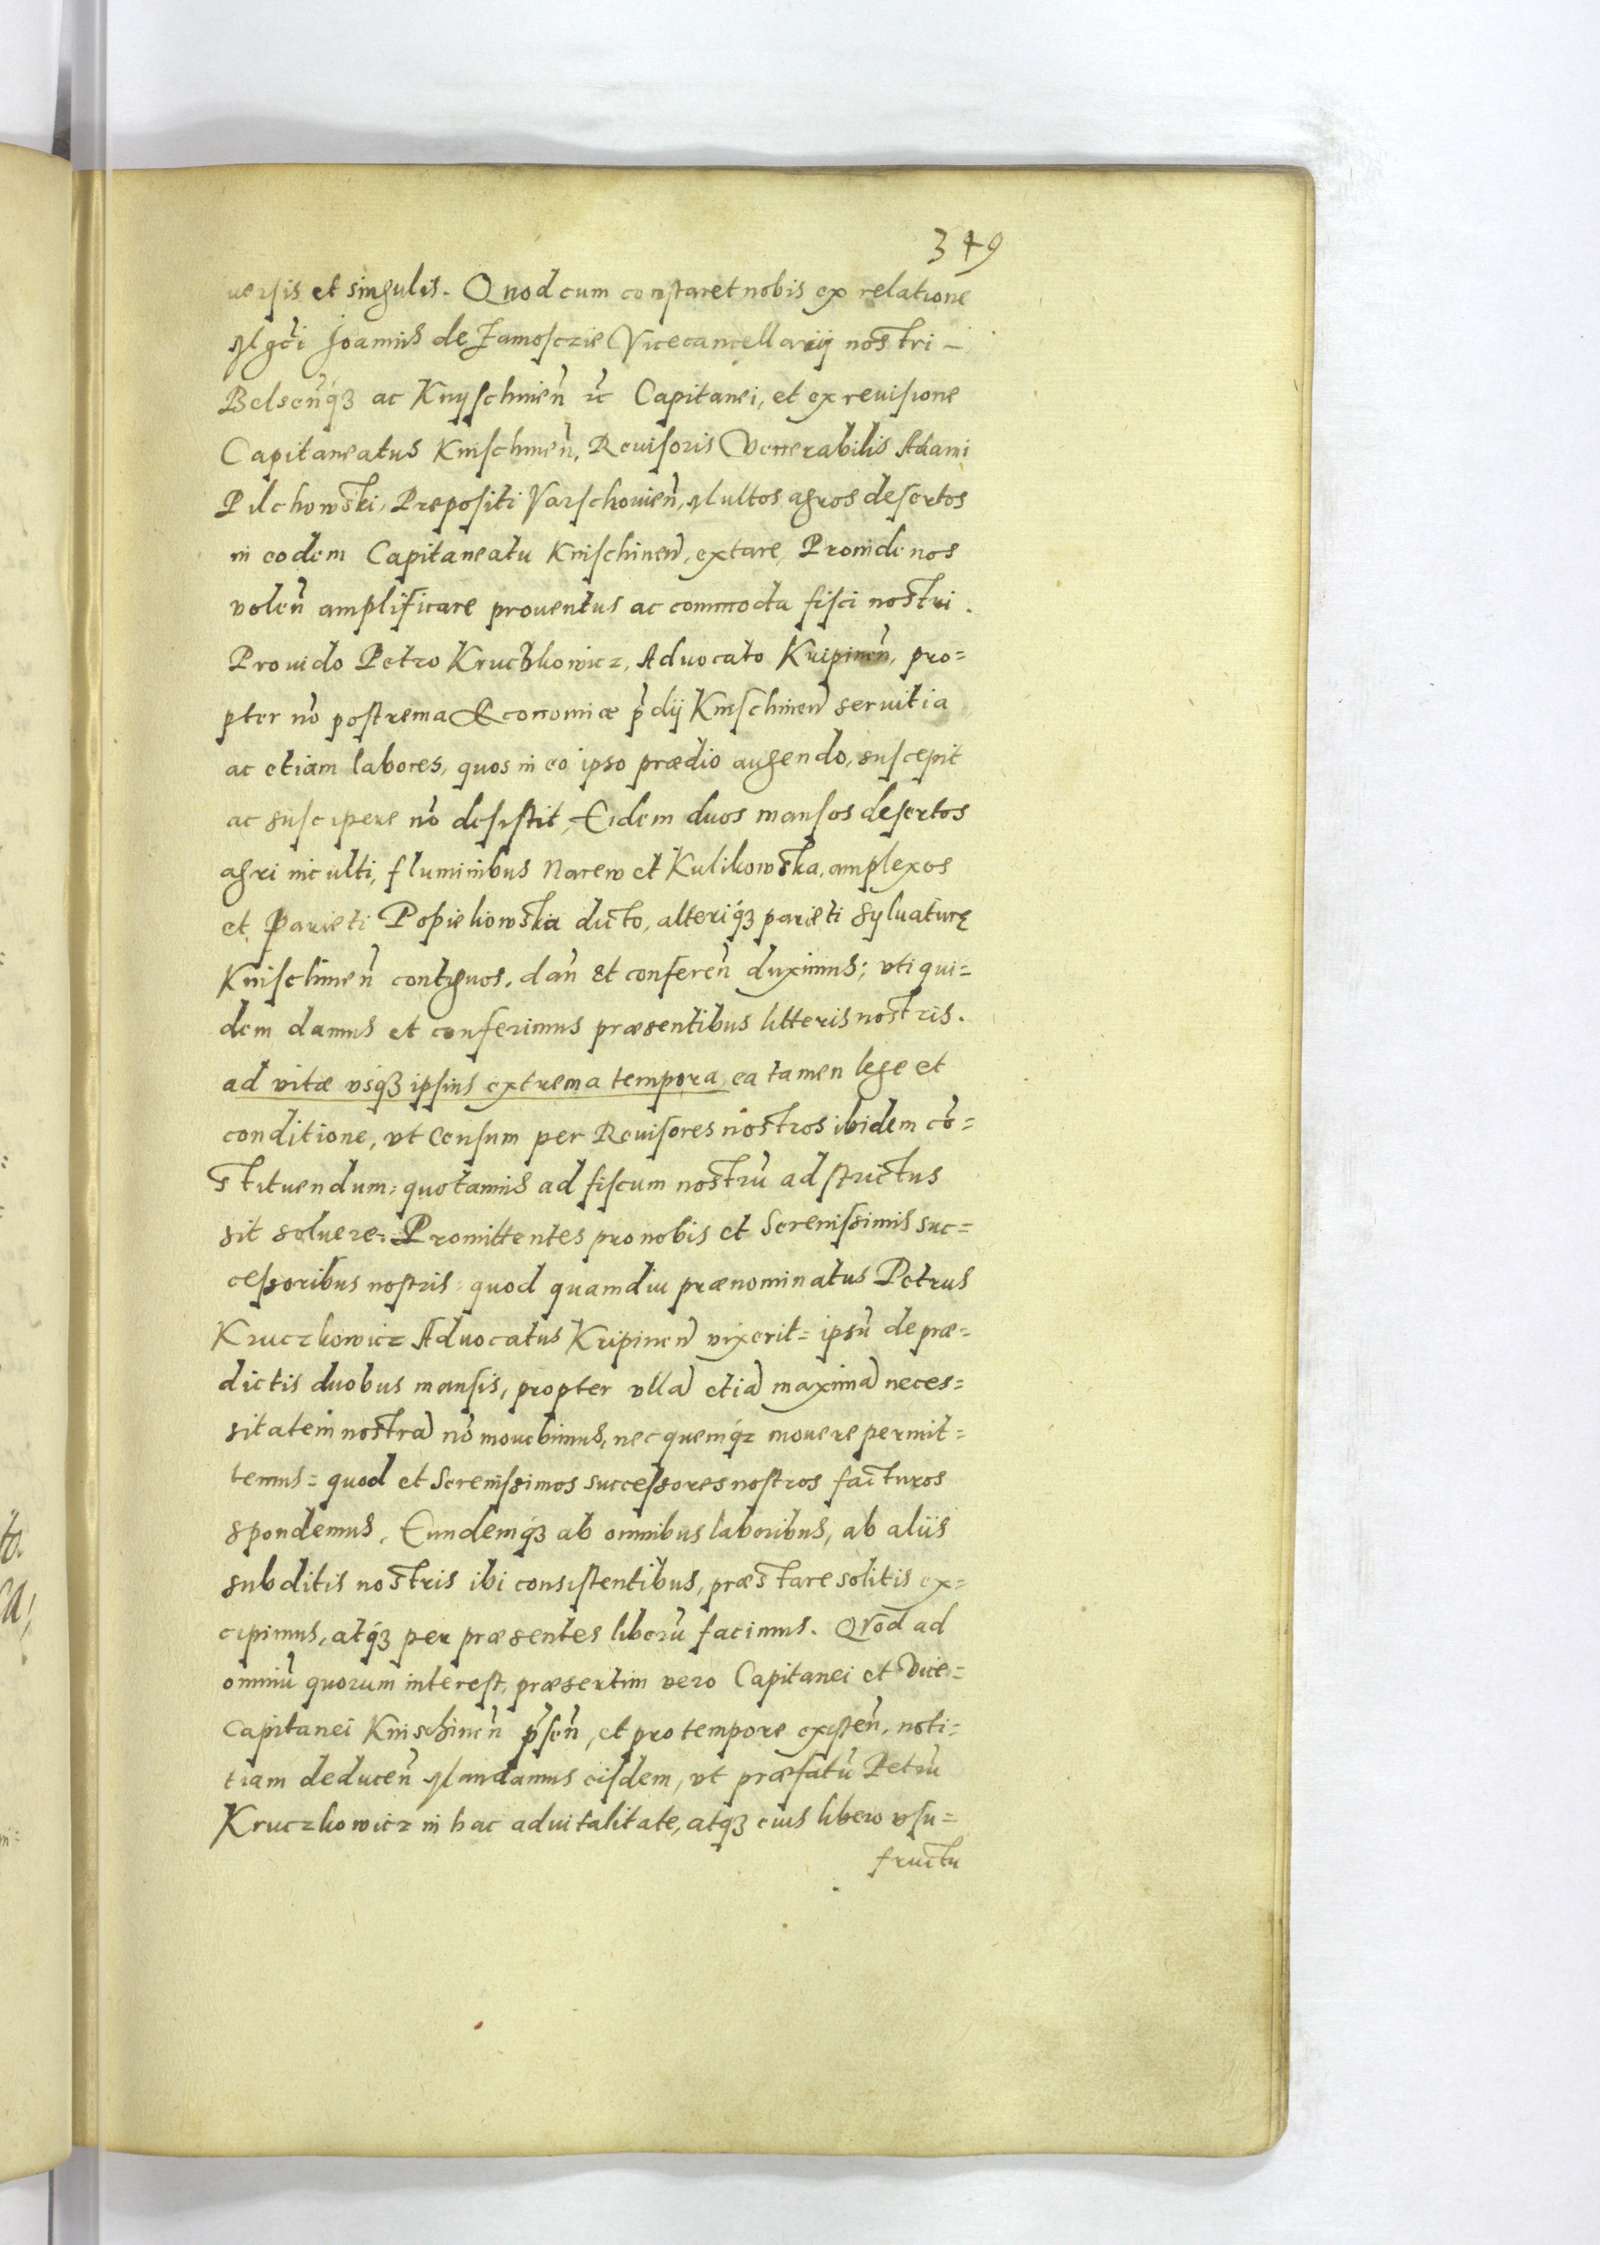 349
uersis et singulis. Quod cum constaret nobis ex relatione
Mgci Joannis de Zamosczie Vicecancellarij nostri –
Belsenqz ac Knyschinen etc Capitanei, et ex reuisione
Capitaneatus Knischinen, Reuisoris Venerabilis Adami
Pilchowski, Prepositi Varschouien, Multos agros desertos
in eodem Capitaneatu Knischinen, extare, Proinde nos
volen amplificare prouentus ac commoda fisci nostri.
Prouido Petro Kruczkowicz, Aduocato Kripinen, pro=
pter no postrema Œconomiæ pdij Knischinen seruitia
ac etiam labores, quos in eo ipso prædio augendo, suscepit
ac suscipere no desistit, Eidem duos mansos desertos
agri inculti, fluminibus Narew et Kulikowska, amplexos
et parieti Popiekowska dicto, alteriqz parieti syluaturę
Knischinen contiguos, dan et conferen duximus; vti qui=
dem damus et conferimus præsentibus litteris nostris.
ad vitæ vsqz ipsius extrema tempora, ea tamen lege et
conditione, vt Censum per Reuisores nostros ibidem co=
stituendum, quotannis ad fiscum nostru adstrictus
sit soluere. Promittentes pro nobis et Serenissimis suc=
cessoribus nostris quod quamdiu prænominatus Petrus
Kruczkowicz Aduocatus Kripinen vixerit= ipsu de præ=
dictis duobus mansis, propter vlla etia maxima neces=
sitatem nostra no mouebimus, nec quemqz mouere permit=
temus= quod et Serenissimos successores nostros facturos
spondemus. Eundemqz ab omnibus laboribus, ab aliis
subditis nostris ibi consistentibus, præstare solitis ex=
cipimus, atqz per præsentes liberu facimus. Qvod ad
omniu quorum interest, præsertim vero Capitanei et Vice=
Capitanei Knischinen psen, et pro tempore existen, noti=
tiam deducen Mandamus eisdem, vt præfatu Petru
Kruczkowicz in hac aduitalitate, atqz eius libero vsu=
fructu